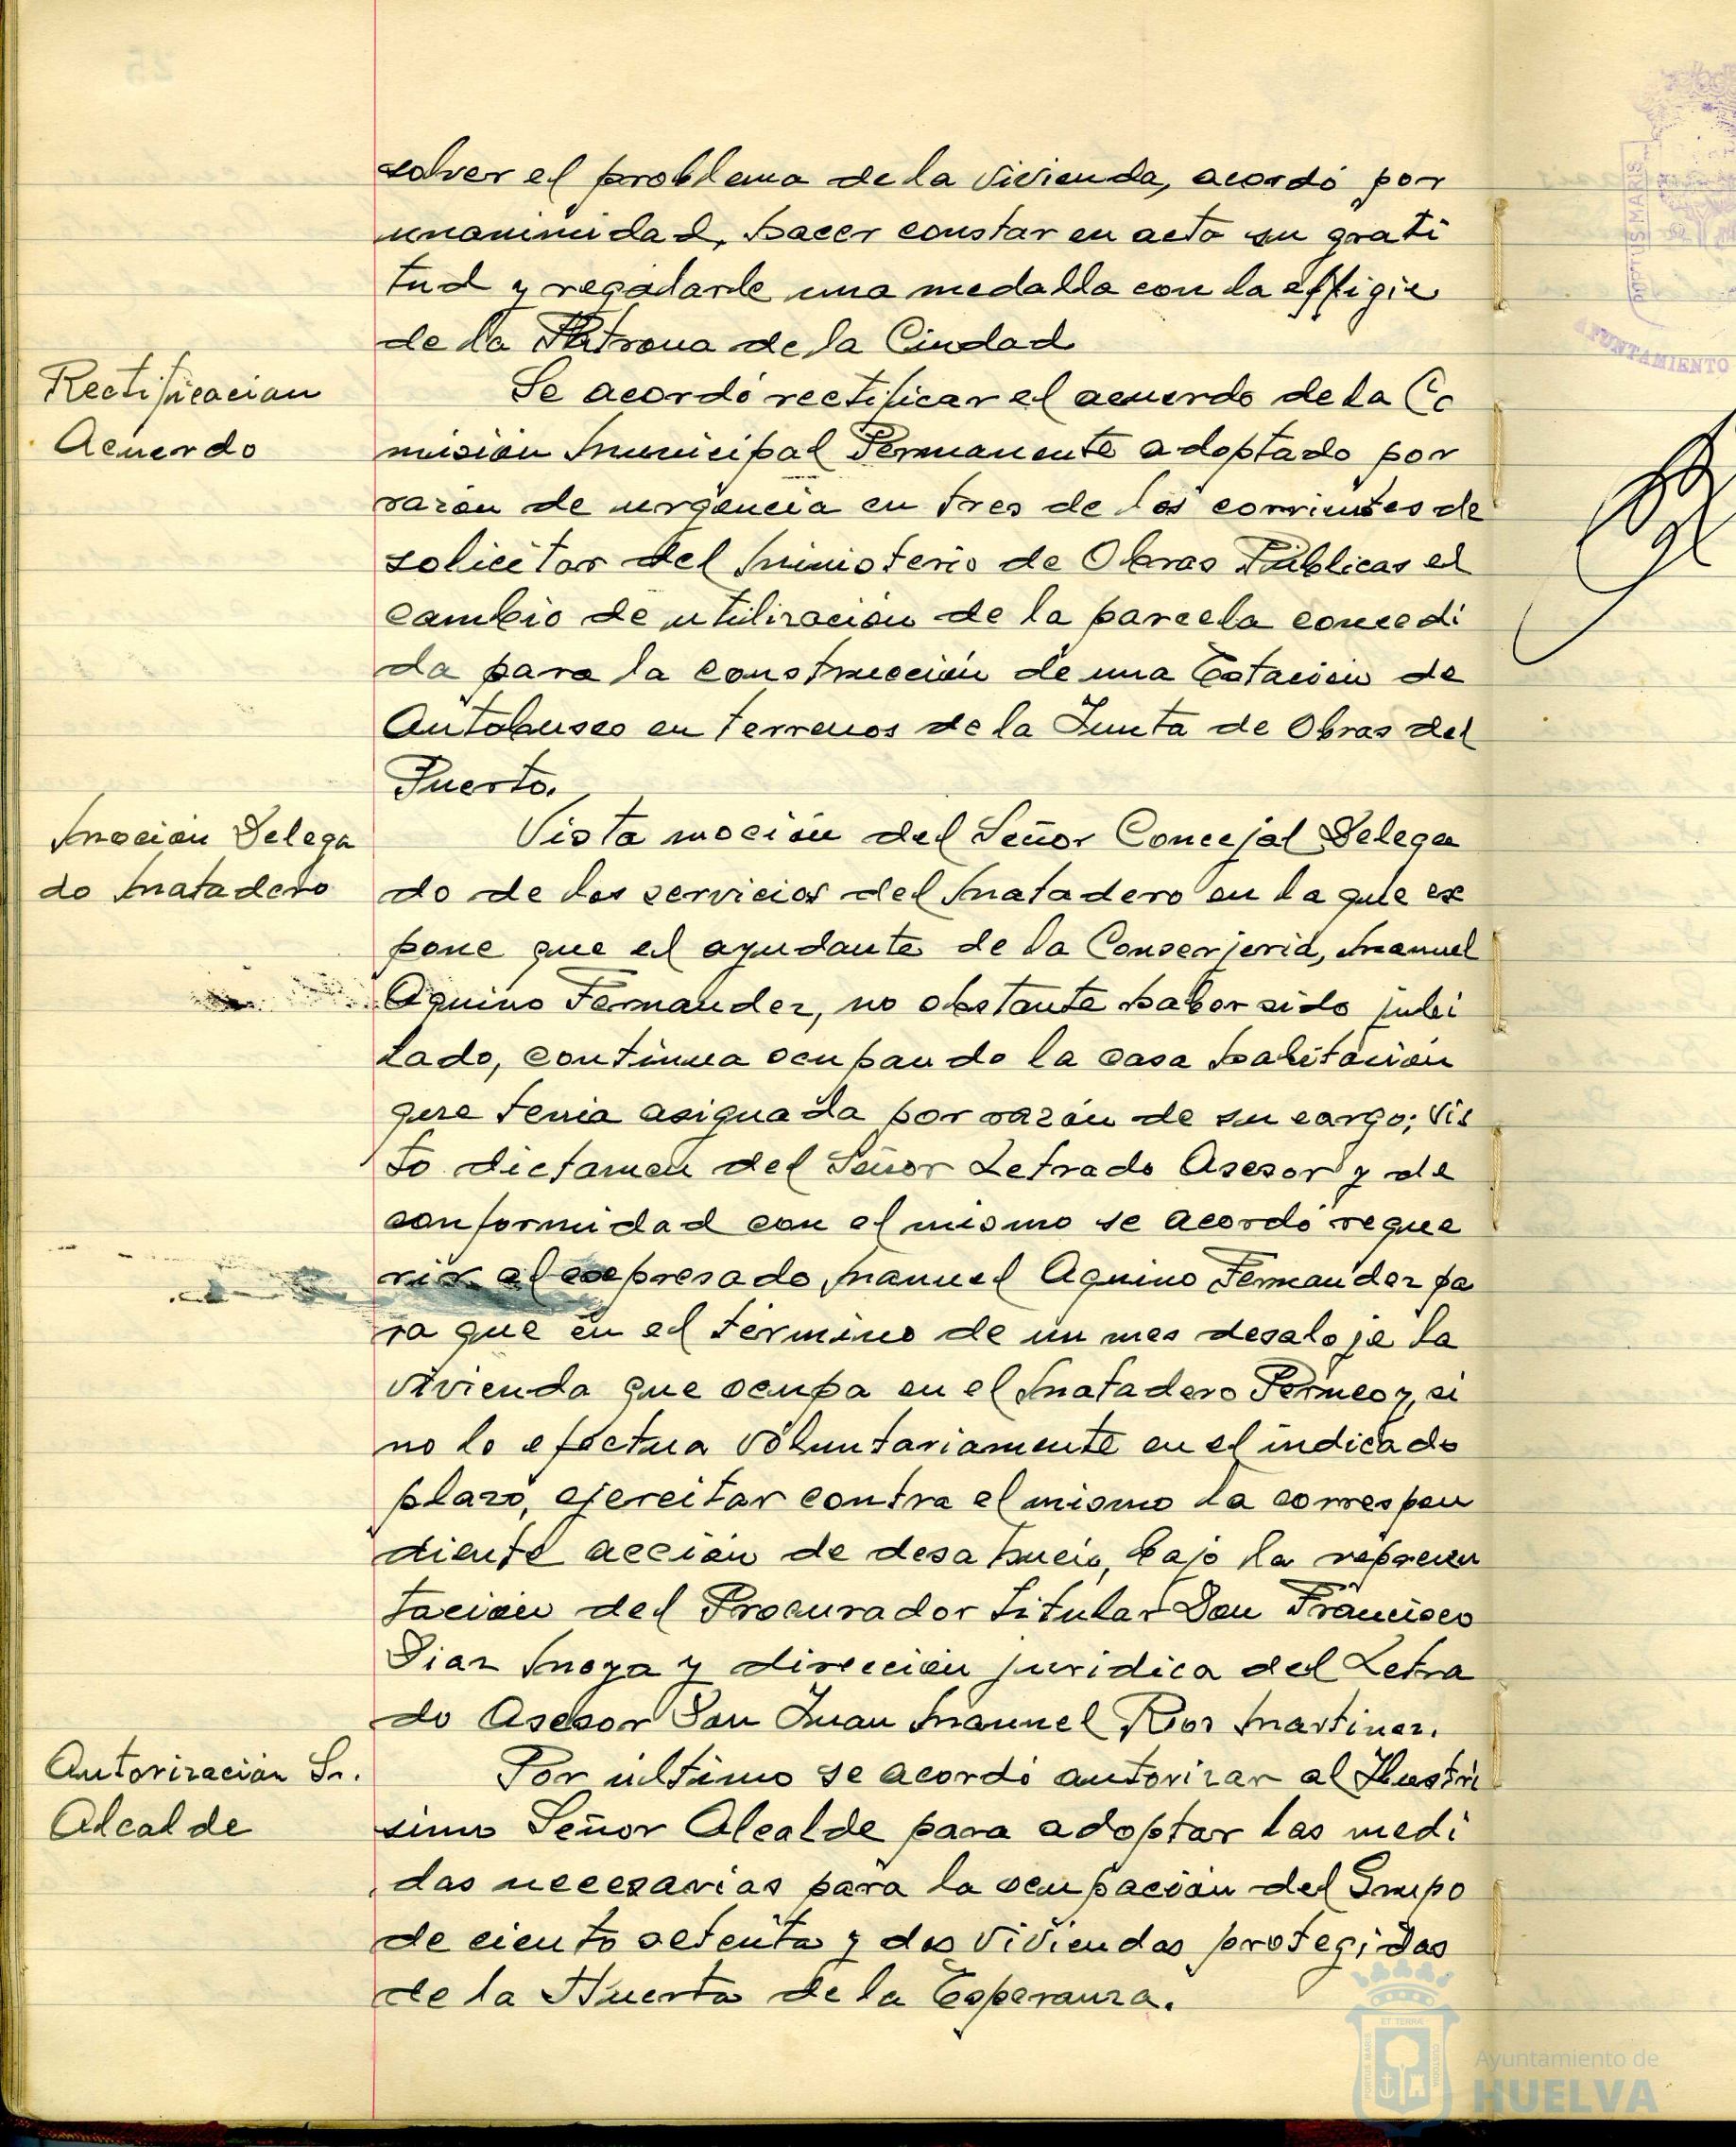 solver el problema de la vivienda, acordó por
unanimidad, hacer constar en acta su grati
tud y regalarle una medalla con la effigie
de la Patrona de la Ciudad
Rectificacion
Acuerdo
Se acordó rectificar el acuerdo de la Co
misión Municipal Permanente adoptado por
razon de urgencia en tres de los corrientes de
solicitar del Ministerio de Obras Públicas el
cambio de utilización de la parcela concedi
da para la construcción de una Estación de
Autobuses en terrenos de la Junta de Obras del
Puerto.
Moción Delega
do Matadero
Vista moción del Señor Concejal Delega
do de los servicios del Matadero en la que ex
pone que el ayudante de la Conserjeria, Manuel
Aquino Fernandez, no obstante haber sido jubi
lado, continua ocupando la casa habitación
que tenia asignada por razón de su cargo; vis
to dictamen del Señor Letrado Asesor y de
conformidad con el mismo se acordó reque
rir al expresado Manuel Aquino Fernandez pa
ra que en el término de un mes desaloje la
vivienda que ocupa en el Matadero y, si
no lo efectua voluntariamente en el indicado
plazo, ejercitar contra el mismo la correspon
diente acción de desahucio, bajo la represen
tación del Procurador titular Don Francisco
Diaz Moya y dirección juridica del Letra
do Asesor Don Juan Manuel Rios Martinez.
Autorización Sr.
Alcalde
Por último se acordó autorizar al Ilustri
simo Señor Alcalde para adoptar las medi
das necesarias para la ocupación del Grupo
de ciento setenta y dos viviendas protegidas
de la Huerta de la Esperanza.
PORTUS MARIS
AYUNTAMIENTO
Ayuntamiento de
HUELVA